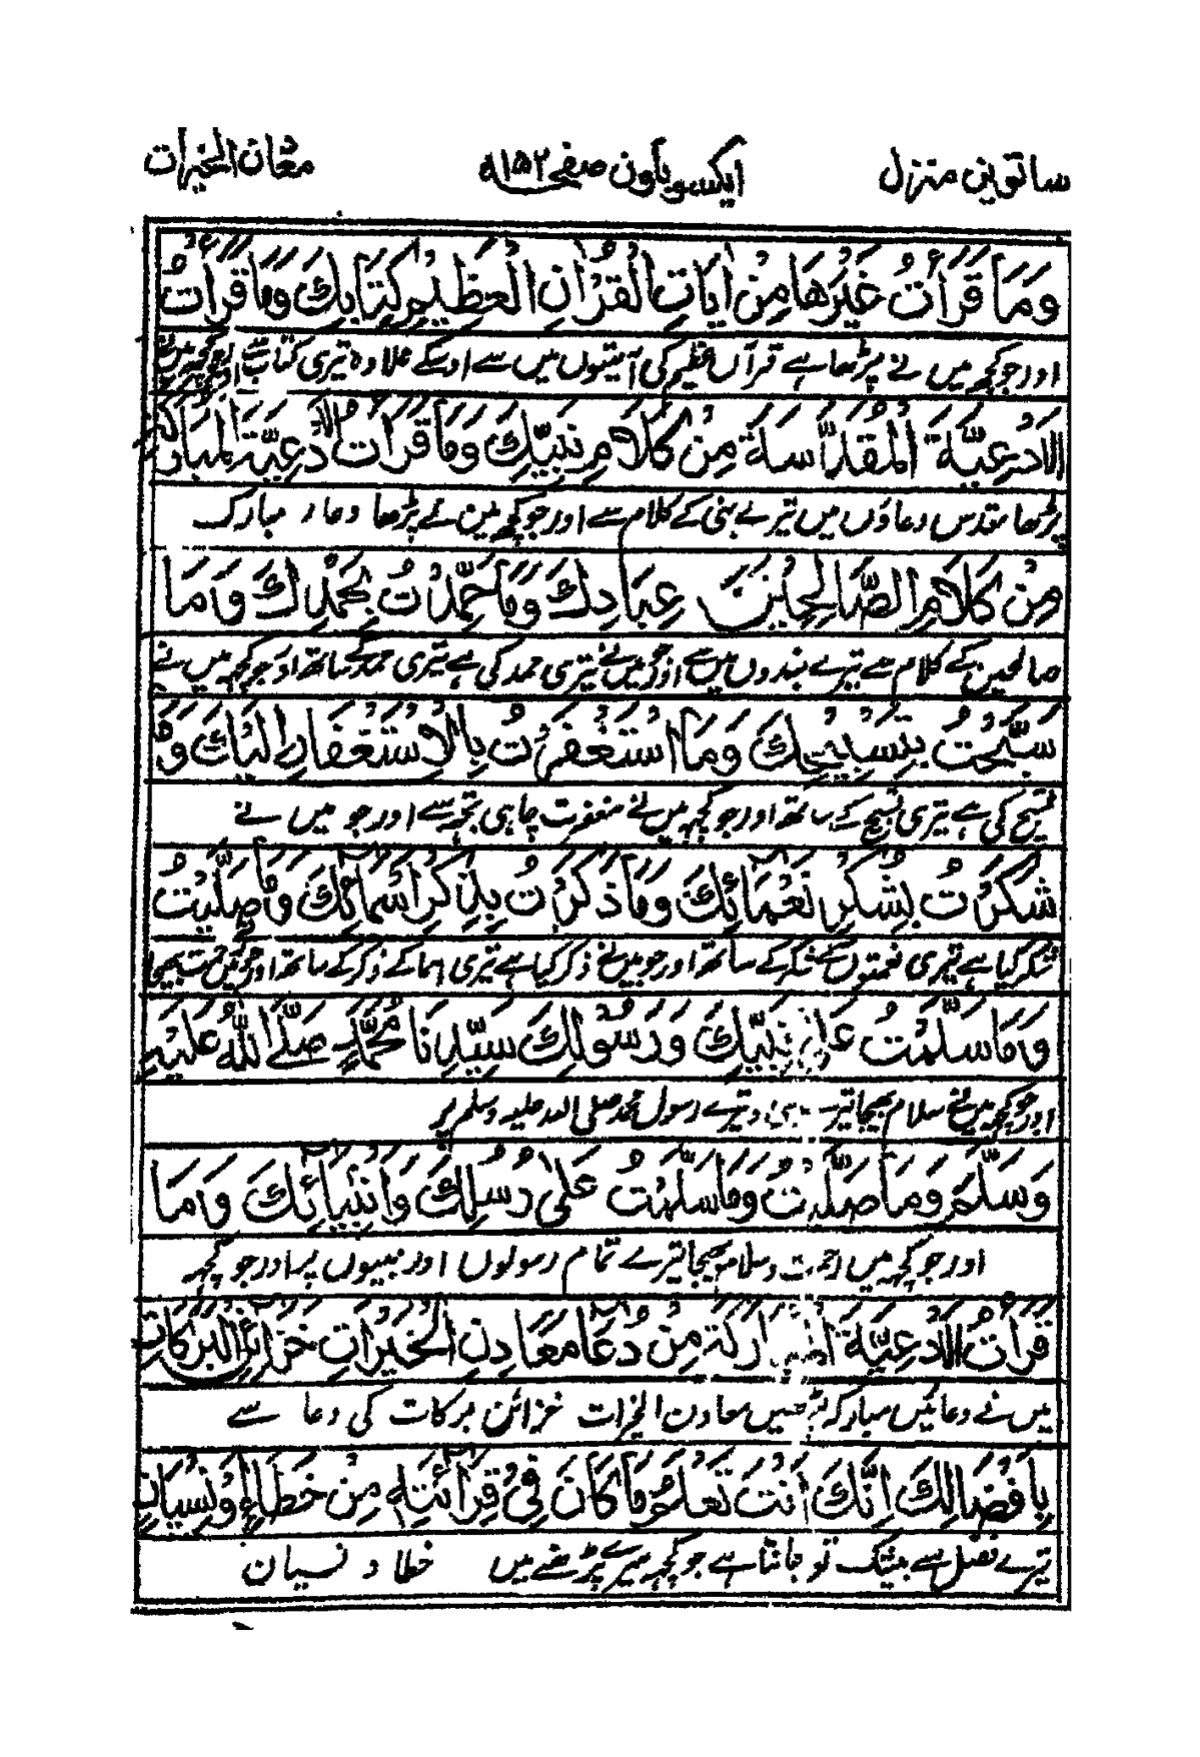 ساتویں منزل ایکسو باون صفحہ ۱۵۲ معان الخیرات
وَمَا قَرَأْتُ غَيْرَهَا مِنْ اٰيَاتِ الْقُرْاٰنِ الْعَظِيْمِ كِتَابِكَ وَمَا قَرَأْتُ
اور جو کچھ میں نے پڑھا ہے قرآن عظیم کی آیتوں میں سے اوسکے علاوہ تیری کتاب
الْاَدْعِيَّةَ الْمُقَدَّسَةَ مِنْ كَلَامِ نَبِيِّكَ وَمَا قَرَأْتُ الْاَدْعِيَّةَ الْمُبَارَكَةَ
پڑھا مقدس دعاؤں میں تیرے نبی کے کلام سے اور جو کچھ مین نے پڑھا دعاء مبارک
مِنْ كَلَامِ الصَّالِحِيْنَ عِبَادِكَ وَمَا حَمَّدْتُ بِحَمْدِكَ وَمَا
صالحین کے کلام سے تیرے بندوں میں سے اور جو میں نے تیری حمد کی ہے تیری حمد کے ساتھ اور جو کچھ میں نے
سَبَّحْتُ بِتَسْبِيْحِكَ وَمَا اسْتَغْفَرْتُ بِالْاِسْتَغْفَارِ اِلَيْكَ وَمَا
تسبیح کی ہے تیری تسبیح کے ساتھ اور جو کچھ میں نے مغفرت چاہی تجھ سے اور جو میں نے
شَكَرْتُ بِشُكْرِ نَعْمَائِكَ وَمَا ذَكَرْتُ بِذِكْرِ اَسْمَائِكَ وَمَا صَلَّيْتُ
شکر کیا ہے تیری نعمتوں کے شکر کے ساتھ اور جو میں نے ذکر کیا ہے تیری اسما کے ذکر کے ساتھ اور جو میں بھیجا
وَمَا سَلَّمْتُ عَلٰى نَبِيِّكَ وَرَسُوْلِكَ سَيِّدِنَا مُحَمَّدٍ صَلَّى اللّٰهُ عَلَيْهِ
اور جو کچھ میں نے سلام بھیجا تیرے نبی و تیرے رسول محمد صلی اللہ علیہ وسلم پر
وَسَلَّمَ وَمَا صَلَّيْتُ وَمَا سَلَّمْتُ عَلٰى رُسُلِكَ وَاَنْبِيَائِكَ وَمَا
اور جو کچھ میں رحمت و سلام بھیجا تیرے تمام رسولوں اور نبیوں پر اور جو کچھ
قَرَأْتُ الْاَدْعِيَّةَ الْمُبَارَكَةَ مِنْ دُعَا مَعَادِنِ الْخَيْرَاتِ خَزَائِنِ الْبَرَكَاتِ
میں نے دعائیں مبارکہ پڑھیں معادن الخیرات خزائن برکات کی دعا سے
بِاَفْضَالِكَ اِنَّكَ اَنْتَ تَعْلَمُ مَا كَانَ فِيْ قِرَائَتِهٖ مِنْ خَطَاءٍ وَنِسْيَانٍ
تیرے فضل سے بیشک تو جانتا ہے جو کچھ میرے پڑھنے میں خطا و نسیان